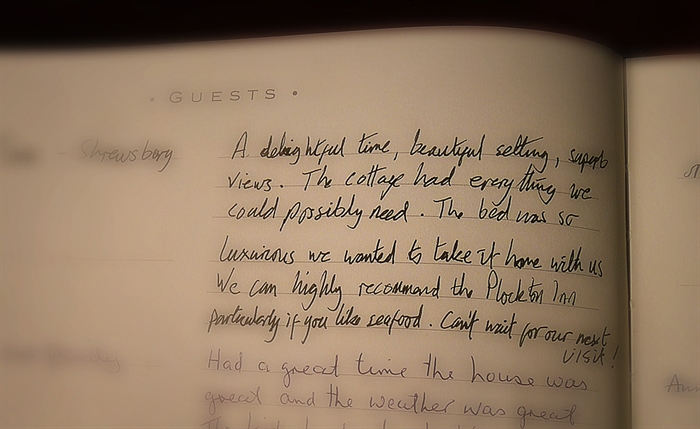 • GUESTS •
Shrewsbury
A delightful time, beautiful setting, superb
views. The cottage had everything we
could possibly need. The bed was so
luxurious we wanted to take it home with us
We can highly recommend the Plockton Inn
particularly if you like seafood. Can't wait for our next
visit!
Had a great time the house was
great and the weather was great